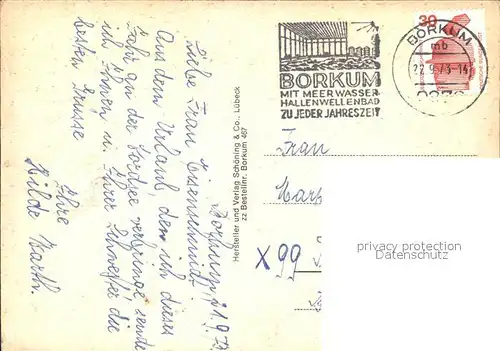 Borkum, 21.9.73
Liebe Frau Eisenschmidt!
Aus dem Urlaub den ich dieses
Jahr an der Nordsee verbringe sende
ich Ihnen u. Ihrer Schwester die
besten Grüsse
Ihre
Hilde Barth.
Hersteller und Verlag Schöning & Co., Lübeck
zz Bestellnr. Borkum 467
BORKUM
MIT MEERWASSER-
HALLENWELLENBAD
ZU JEDER JAHRESZEIT
BORKUM
mb
22.9.73-14
30
Frau
X 99
privacy protection
Datenschutz